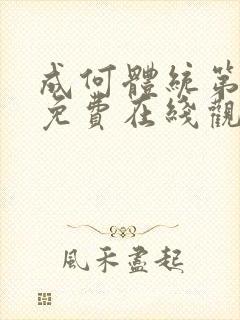 成何體統第
免費在綫觀
風禾盡起